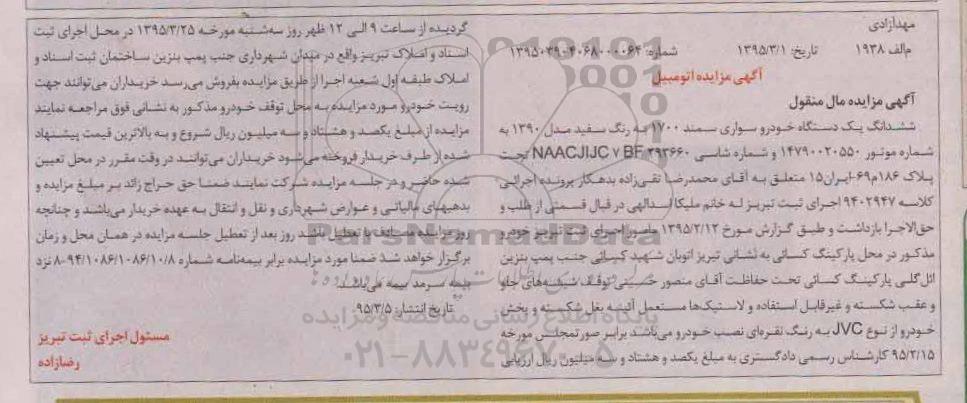 مهدآزادی
م‌الف ۱۹۳۸ تاریخ: ۱۳۹۵/۳/۱ شماره: ۱۳۹۵۰۳۹۰۴۰۶۸۰۰۰۰۶۴
آگهی مزایده اتومبیل
آگهی مزایده مال منقول
ششدانگ یک دستگاه خودرو سواری سمند ۱۷۰۰ به رنگ سفید مدل ۱۳۹۰ به
شماره موتور ۱۴۷۹۰۰۲۰۵۵۰ و شماره شاسی NAACJIJC ۷ BF ۳۹۳۶۶۰ تحت
پلاک ۱۸۶م۶۹-ایران۱۵ متعلق به آقای محمدرضا تقی‌زاده بدهکار پرونده اجرائی
کلاسه ۹۴۰۲۹۴۷ اجرای ثبت تبریز له خانم ملیکا اسدالهی در قبال قسمتی از طلب و
حق‌الاجرا بازداشت و طبق گزارش مورخ ۱۳۹۵/۲/۱۲ مامور اجرای ثبت تبریز خودرو
مذکور در محل پارکینگ کسائی به نشانی تبریز اتوبان شهید کسائی جنب پمپ بنزین
ائل‌گلی پارکینگ کسائی تحت حفاظت آقای منصور حسینی توقف شیشه‌های جلو
و عقب شکسته و غیرقابل استفاده و لاستیک‌ها مستعمل آئینه بغل شکسته و پخش
خودرو از نوع JVC به رنگ نقره‌ای نصب خودرو می‌باشد برابر صورتمجلس مورخه
۹۵/۲/۱۵ کارشناس رسمی دادگستری به مبلغ یکصد و هشتاد و سه میلیون ریال ارزیابی
گردیده از ساعت ۹ الی ۱۲ ظهر روز سه‌شنبه مورخه ۱۳۹۵/۳/۲۵ در محل اجرای ثبت
اسناد و املاک تبریز واقع در میدان شهرداری جنب پمپ بنزین ساختمان ثبت اسناد و
املاک طبقه اول شعبه اجرا از طریق مزایده بفروش می‌رسد خریداران می‌توانند جهت
رویت خودرو مورد مزایده به محل توقف خودرو مذکور به نشانی فوق مراجعه نمایند
مزایده از مبلغ یکصد و هشتاد و سه میلیون ریال شروع و به بالاترین قیمت پیشنهاد
شده از طرف خریدار فروخته می‌شود خریداران می‌توانند در وقت مقرر در محل تعیین
شده حاضر و در جلسه مزایده شرکت نمایند ضمنا حق حراج زائد بر مبلغ مزایده و
بدهیهای مالیاتی و عوارض شهرداری و نقل و انتقال به عهده خریدار می‌باشند و چنانچه
روز مزایده مصادف با تعطیل باشد روز بعد از تعطیل جلسه مزایده در همان محل و زمان
برگزار خواهد شد ضمنا مورد مزایده برابر بیمه‌نامه شماره ۸-۹۴/۱۰۸۶/۱-۸۶/۱۰/۸ نزد
بیمه سرمد بیمه می‌باشد.
تاریخ انتشار: ۹۵/۳/۵
مسئول اجرای ثبت تبریز
رضازاده
ParsNamadData
پایگاه اطلاع رسانی مناقصه و مزایده
۰۲۱-۸۸۳۴۹۶۷۰-۵